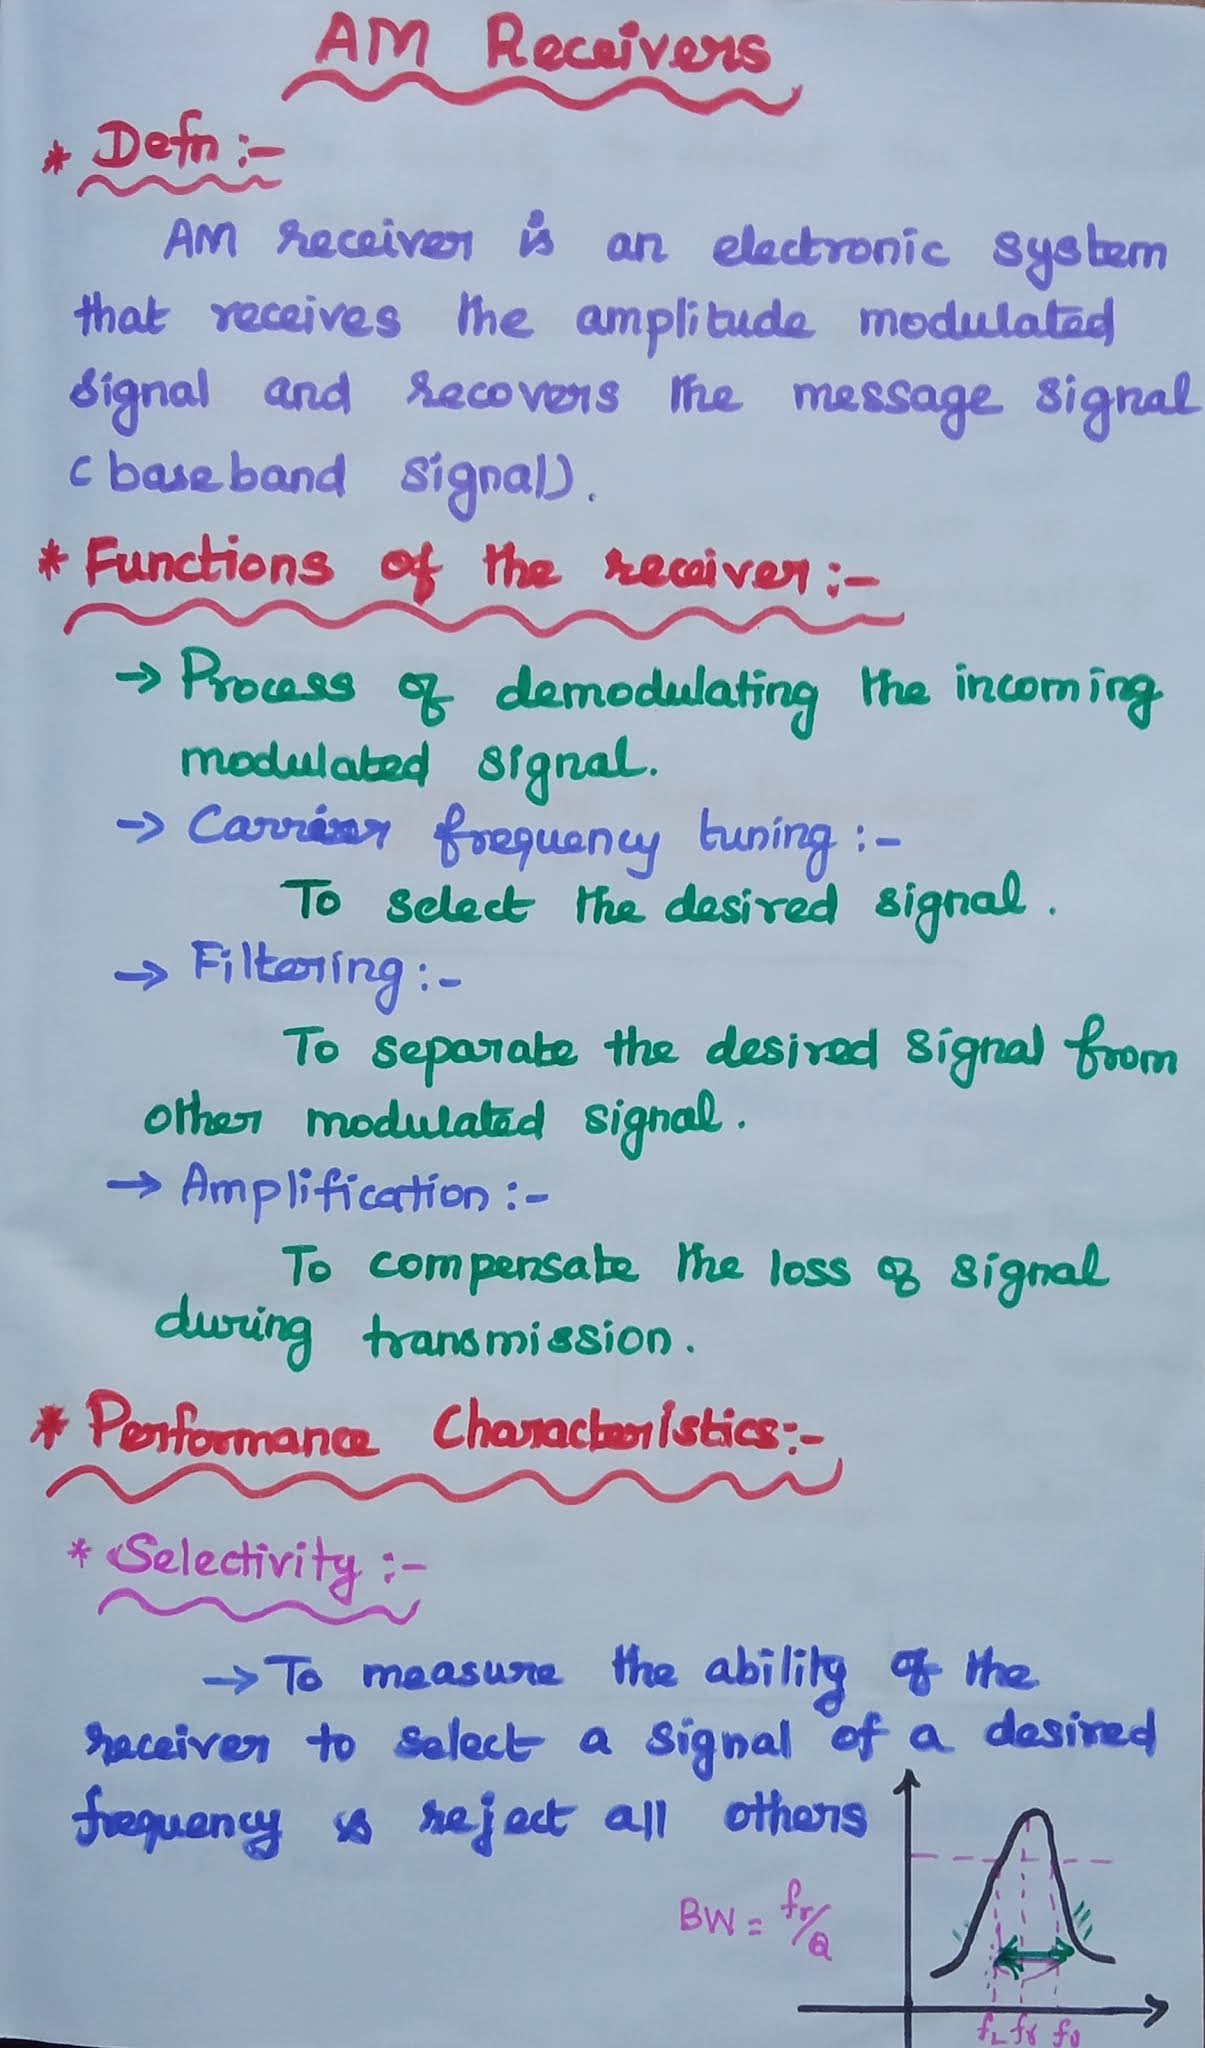 AM Receivers
* Defn :-
AM receiver is an electronic system
that receives the amplitude modulated
signal and recovers the message signal
(baseband signal).
* Functions of the receiver :-
→ Process of demodulating the incoming
modulated signal.
→ Carrier frequency tuning :-
To select the desired signal.
→ Filtering :-
To separate the desired signal from
other modulated signal.
→ Amplification :-
To compensate the loss of signal
during transmission.
* Performance Characteristics:-
* Selectivity :-
→ To measure the ability of the
receiver to select a signal of a desired
frequency is reject all others
BW = fr/Q
fL fr